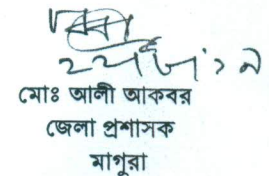 মোঃ আলী আকবর
জেলা প্রশাসক
মাগুরা